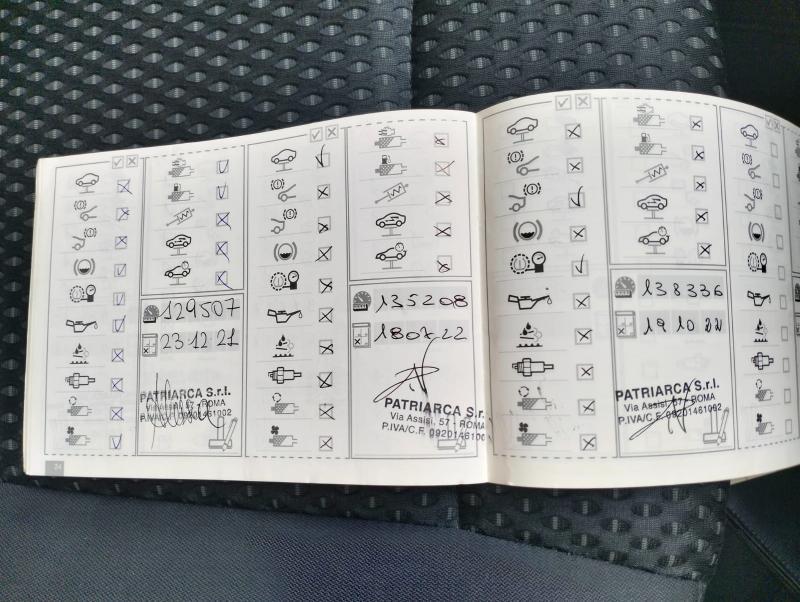 129507
23 12 21
PATRIARCA S.r.l.
Via Assisi, 57 - ROMA
P.IVA/C.F. 09201461002
24
135208
180722
PATRIARCA S.r.
Via Assisi, 57 - ROMA
P.IVA/C.F. 0920146100
138336
19 10 22
PATRIARCA S.r.l.
Via Assisi, 57 - ROMA
P.IVA/C.F. 09201461002